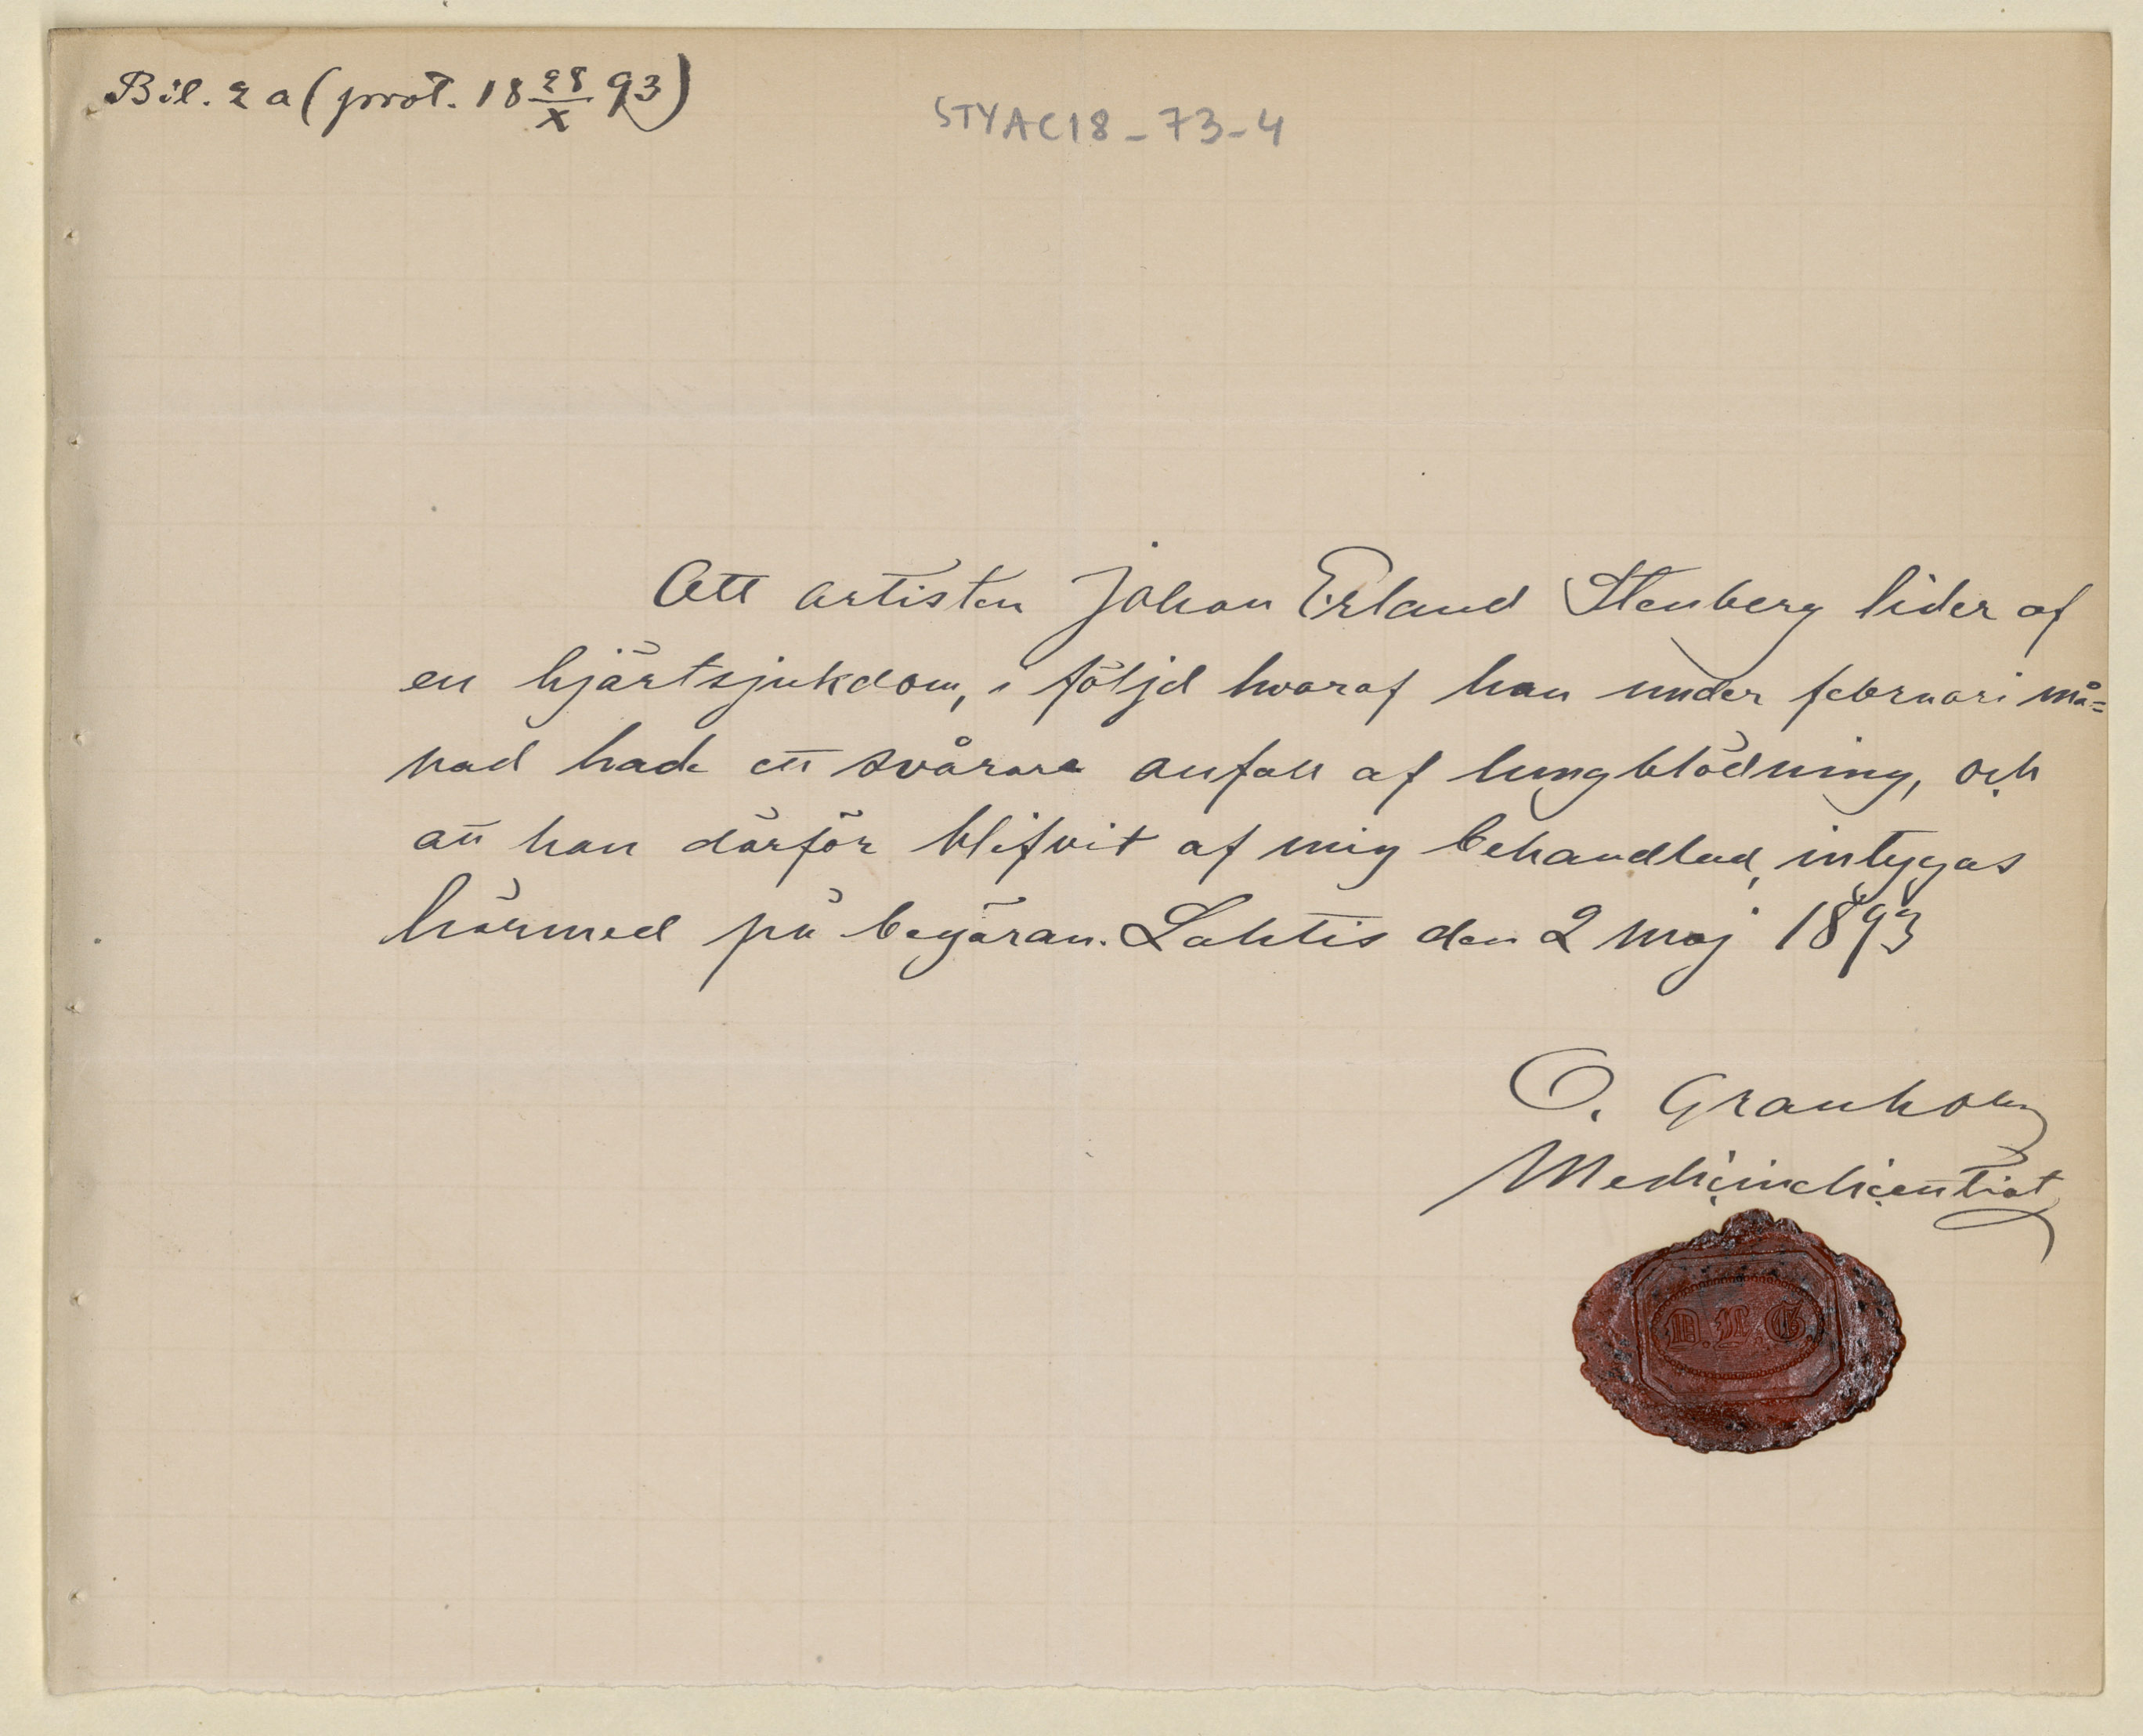 Bil. 2 a (prot. 18 28/X 93)
STYAC18-73-4
Att artisten Johan Erland Stenberg lider af
en hjärtsjukdom, i följd hvaraf han under februari må=
nad hade ett svårare anfall af lungblödning, och
att han därför blifvit af mig behandlad, intygas
härmed på begäran. Lahtis den 2 maj 1893
O. Granholm
Medicinelicentiat
D.L.G.